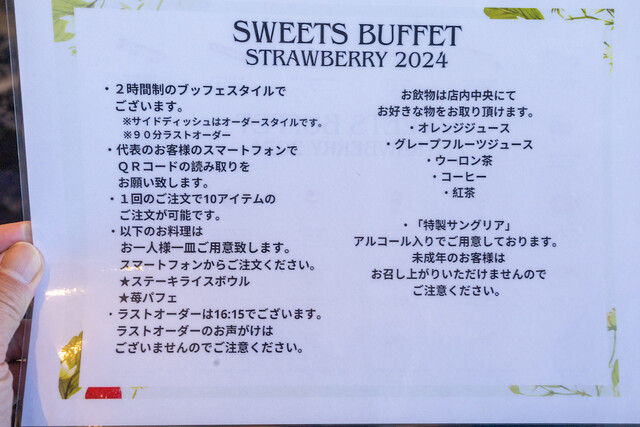 SWEETS BUFFET
STRAWBERRY 2024
・２時間制のブッフェスタイルで
ございます。
※サイドディッシュはオーダースタイルです。
※９０分ラストオーダー
・代表のお客様のスマートフォンで
ＱＲコードの読み取りを
お願い致します。
・１回のご注文で10アイテムの
ご注文が可能です。
・以下のお料理は
お一人様一皿ご用意致します。
スマートフォンからご注文ください。
★ステーキライスボウル
★苺パフェ
・ラストオーダーは16:15でございます。
ラストオーダーのお声がけは
ございませんのでご注意ください。
お飲物は店内中央にて
お好きな物をお取り頂けます。
・オレンジジュース
・グレープフルーツジュース
・ウーロン茶
・コーヒー
・紅茶
・「特製サングリア」
アルコール入りでご用意しております。
未成年のお客様は
お召し上がりいただけませんので
ご注意ください。